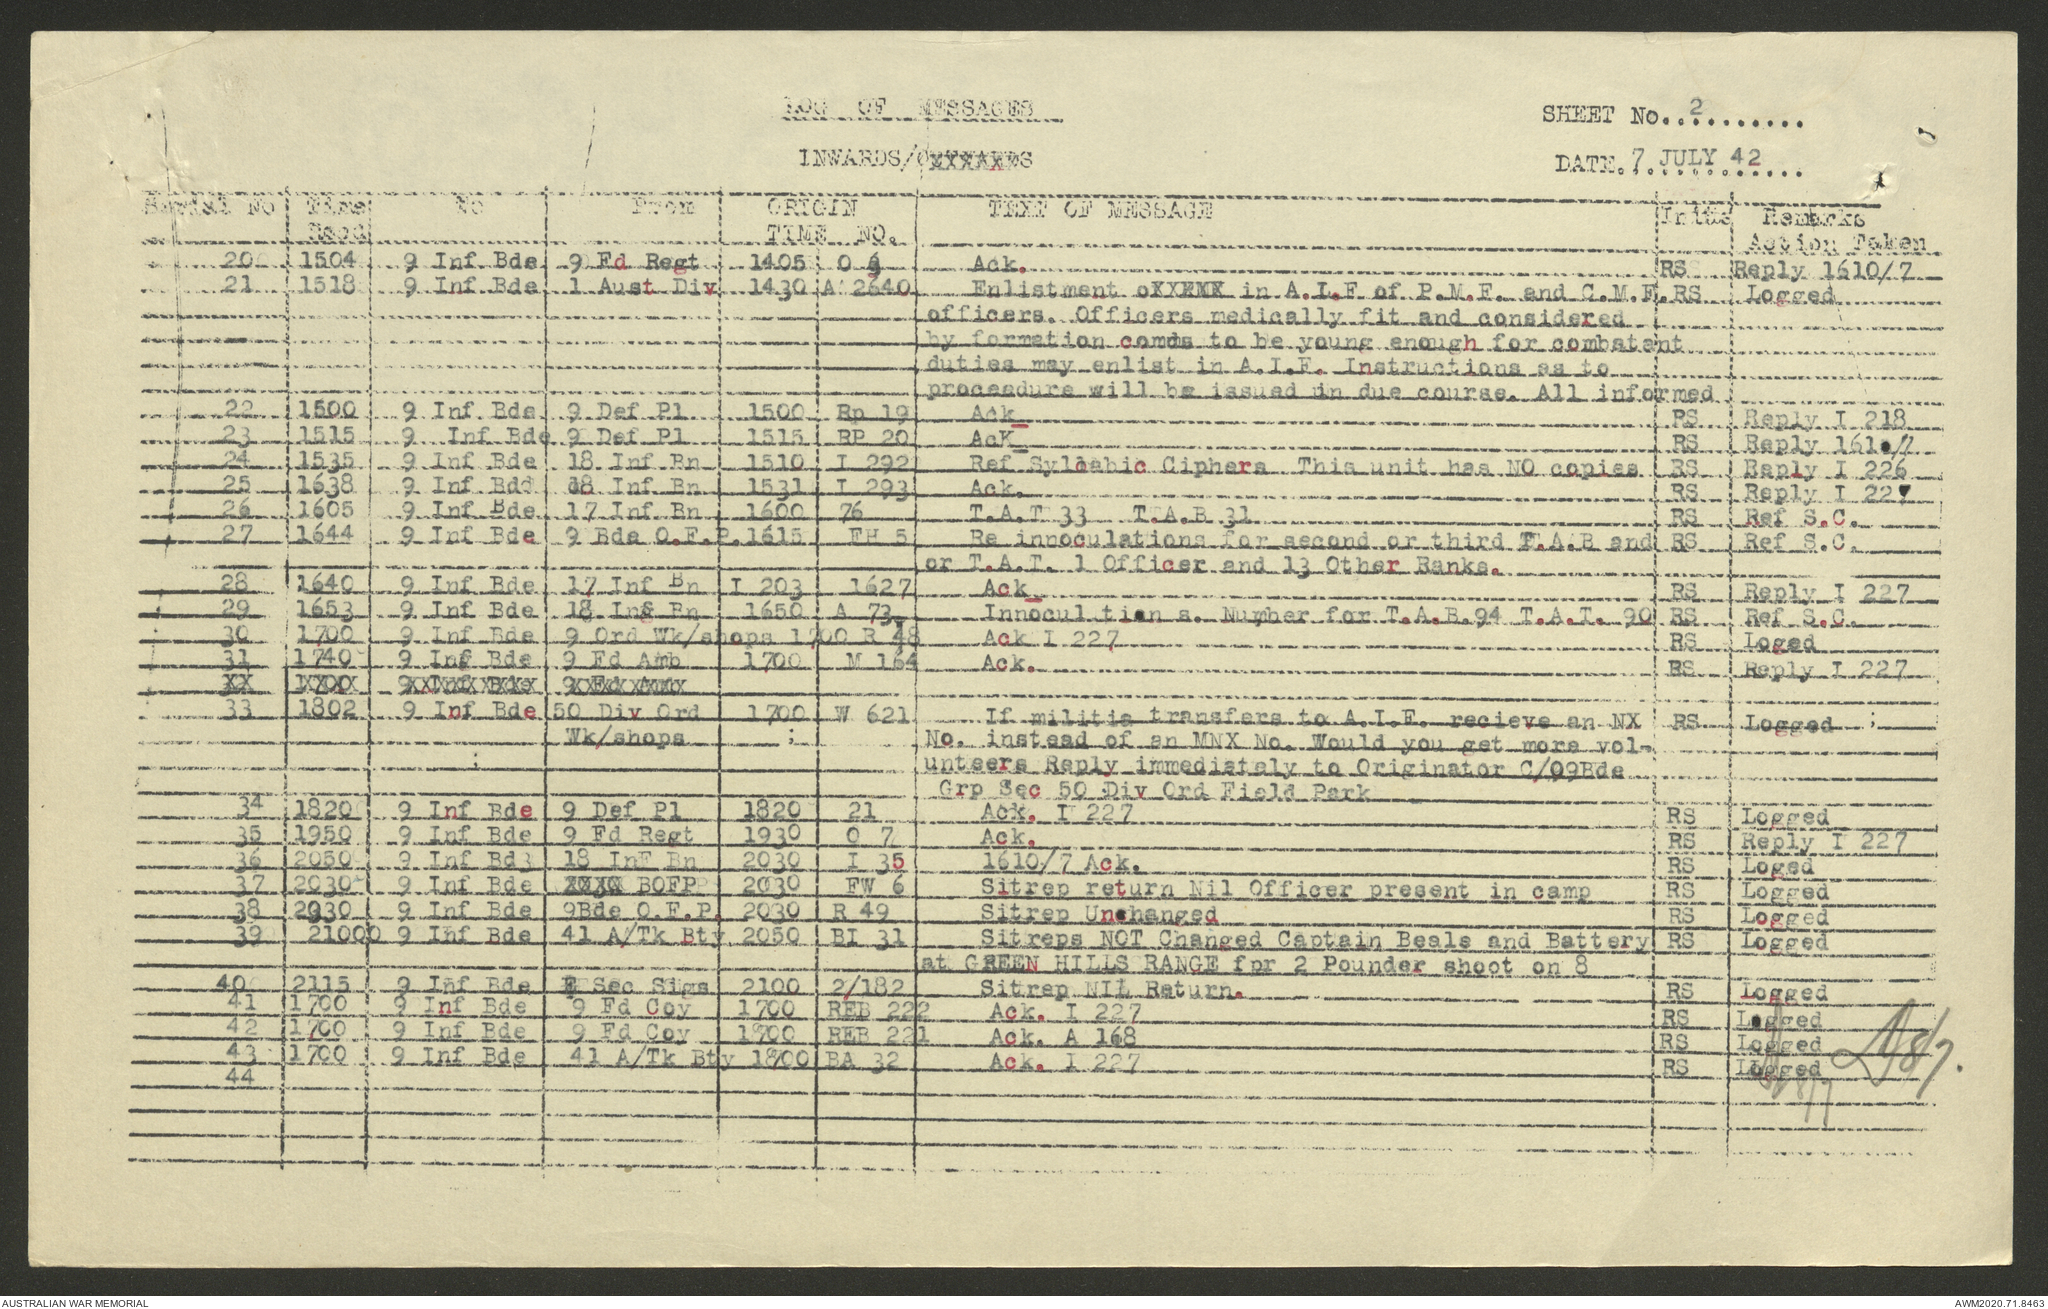 LOG OF MESSAGES
SHEET No. 2
INWARDS/
DATE. 7 JULY 42
Serial No Time To From ORIGIN TEXT OF MESSAGE Initls Remarks
Recd TIME NO. Action Taken
20 1504 9 Inf Bde 9 Fd Regt 1405 O 6 Ack. RS Reply 1610/7
21 1518 9 Inf Bde 1 Aust Div 1430 A 2640 Enlistment oXXXXX in A.I.F of P.M.F. and C.M.F. RS Logged
officers. Officers medically fit and considered
by formation comds to be young enough for combatant
duties may enlist in A.I.F. Instructions as to
proceedure will be issued in due course. All informed
22 1500 9 Inf Bde 9 Def Pl 1500 Rp 19 Ack RS Reply I 218
23 1515 9 Inf Bde 9 Def Pl 1515 RP 20 AcK RS Reply 1610/7
24 1535 9 Inf Bde 18 Inf Bn 1510 I 292 Ref Sylcabic Ciphers This unit has NO copies RS Reply I 226
25 1638 9 Inf Bdd 18 Inf Bn 1531 I 293 Ack. RS Reply I 227
26 1605 9 Inf Bde 17 Inf Bn 1600 76 T.A.T 33 T.A.B 31 RS Ref S.C.
27 1644 9 Inf Bde 9 Bde O.F.P. 1615 FH 5 Re innoculations for second or third T.A.B and RS Ref S.C.
or T.A.T. 1 Officer and 13 Other Ranks.
28 1640 9 Inf Bde 17 Inf Bn I 203 1627 Ack RS Reply I 227
29 1653 9 Inf Bde 18 Inf Bn 1650 A 73 Innocultion s. Number for T.A.B.94 T.A.T. 90 RS Ref S.C.
30 1700 9 Inf Bde 9 Ord Wk/shops 1700 R 48 Ack I 227 RS Loged
31 1740 9 Inf Bde 9 Fd Amb 1700 M 164 Ack. RS Reply I 227
XX 1700 9 Inf Bde 9 Fd Amb
33 1802 9 Inf Bde 50 Div Ord 1700 W 621 If militia transfers to A.I.F. recieve an NX RS Logged ;
Wk/shops ; No. instead of an MNX No. Would you get more vol-
unteers Reply immediately to Originator C/O9Bde
Grp Sec 50 Div Ord Field Park
34 1820 9 Inf Bde 9 Def Pl 1820 21 Ack. I 227 RS Logged
35 1950 9 Inf Bde 9 Fd Regt 1930 O 7 Ack. RS Reply I 227
36 2050 9 Inf Bd3 18 Inf Bn 2030 I 35 1610/7 Ack. RS Loged
37 2030 9 Inf Bde XXXX BOFP 2030 FW 6 Sitrep return Nil Officer present in camp RS Logged
38 2030 9 Inf Bde 9Bde O.F.P. 2030 R 49 Sitrep Unchanged RS Logged
39 21000 9 Inf Bde 41 A/Tk Bty 2050 BI 31 Sitreps NOT Changed Captain Beals and Battery RS Logged
at GREEN HILLS RANGE fpr 2 Pounder shoot on 8
40 2115 9 Inf Bde E Sec Sigs 2100 2/182 Sitrep NIL Return. RS Logged
41 1700 9 Inf Bde 9 Fd Coy 1700 REB 222 Ack. I 227 RS Logged
42 1700 9 Inf Bde 9 Fd Coy 1800 REB 221 Ack. A 168 RS Logged
43 1700 9 Inf Bde 41 A/Tk Bty 1800 BA 32 Ack. I 227 RS Logged
44
8/7
8/7.
AUSTRALIAN WAR MEMORIAL
AWM2020.71.8463